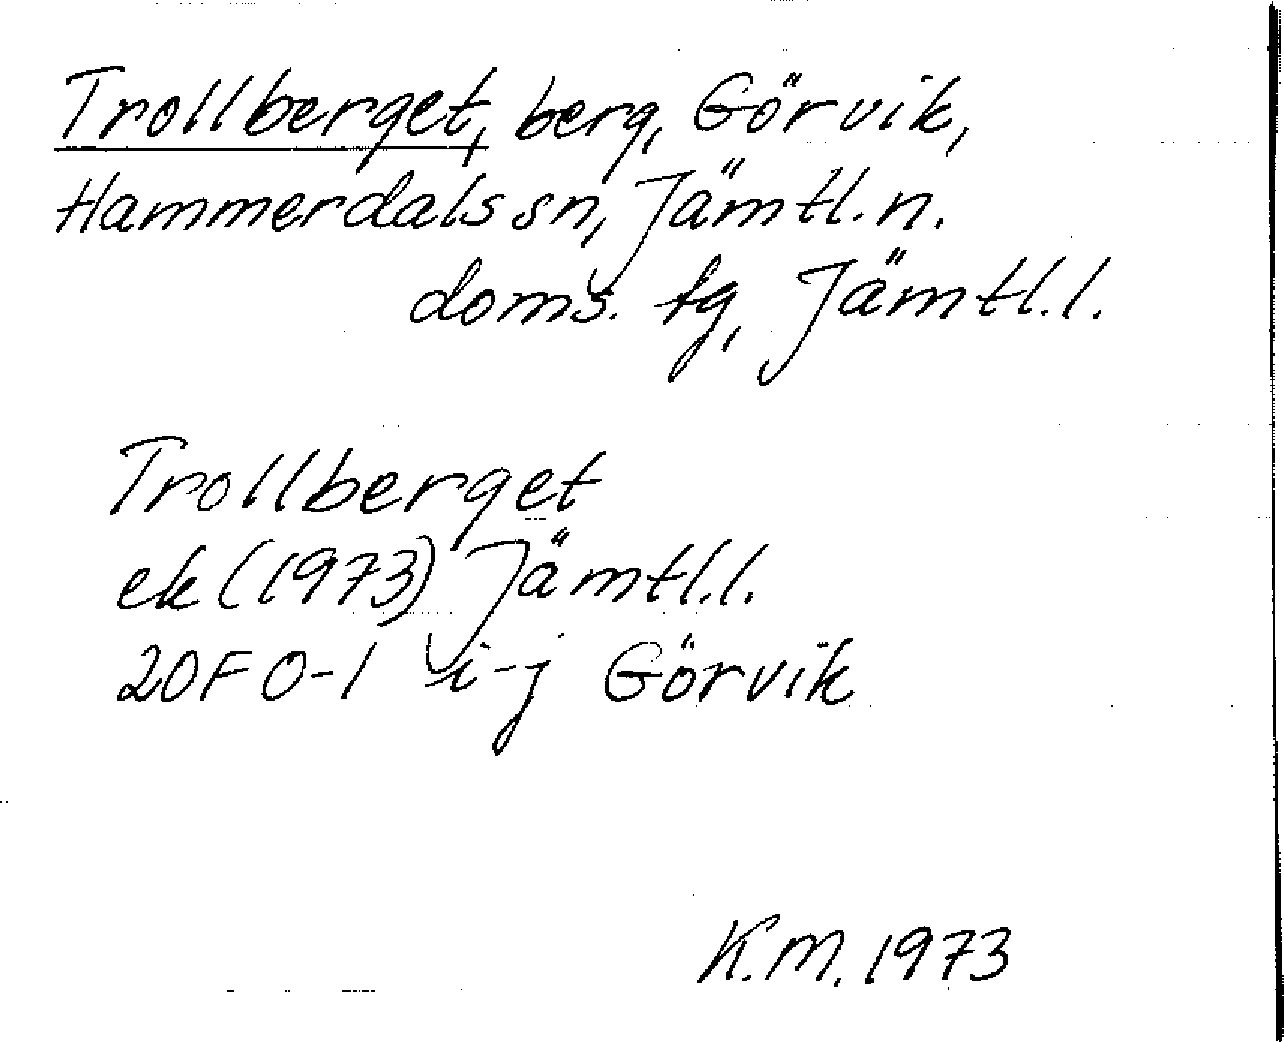 Trollberget, berg, Görvik,
Hammerdals sn, Jämtl. n.
doms. tg, Jämtl. l.
Trollberget
ek (1973) Jämtl. l.
20F 0-1 i-j Görvik
K.M. 1973